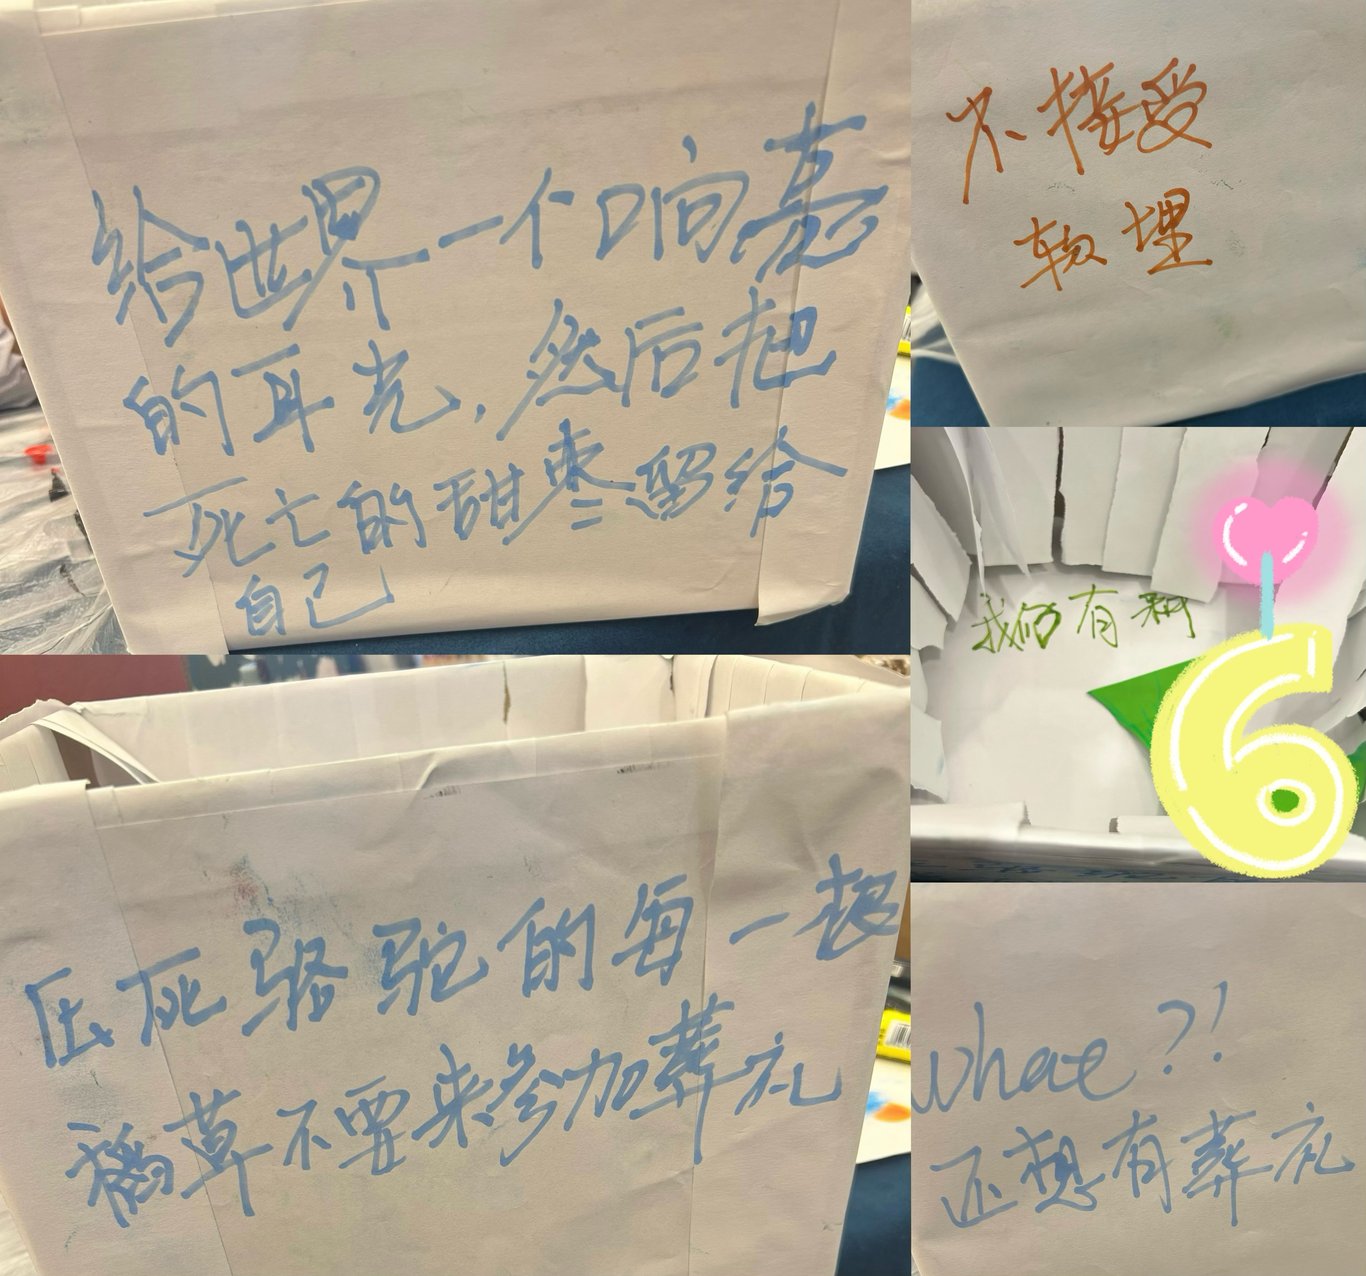 给世界一个响亮
的耳光，然后把
死亡的甜枣留给
自己
不接受
软埋
我们有种
6
压死骆驼的每一根
稻草不要来参加葬礼
What?!
还想有葬礼